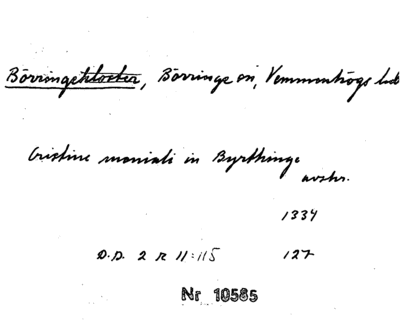 Börringekloster, Börringe sn, Vemmenhögs hd
Cristine moniali in Byrthinge
avskr.
1334
D.D. 2 R 11:115 127
Nr 10585